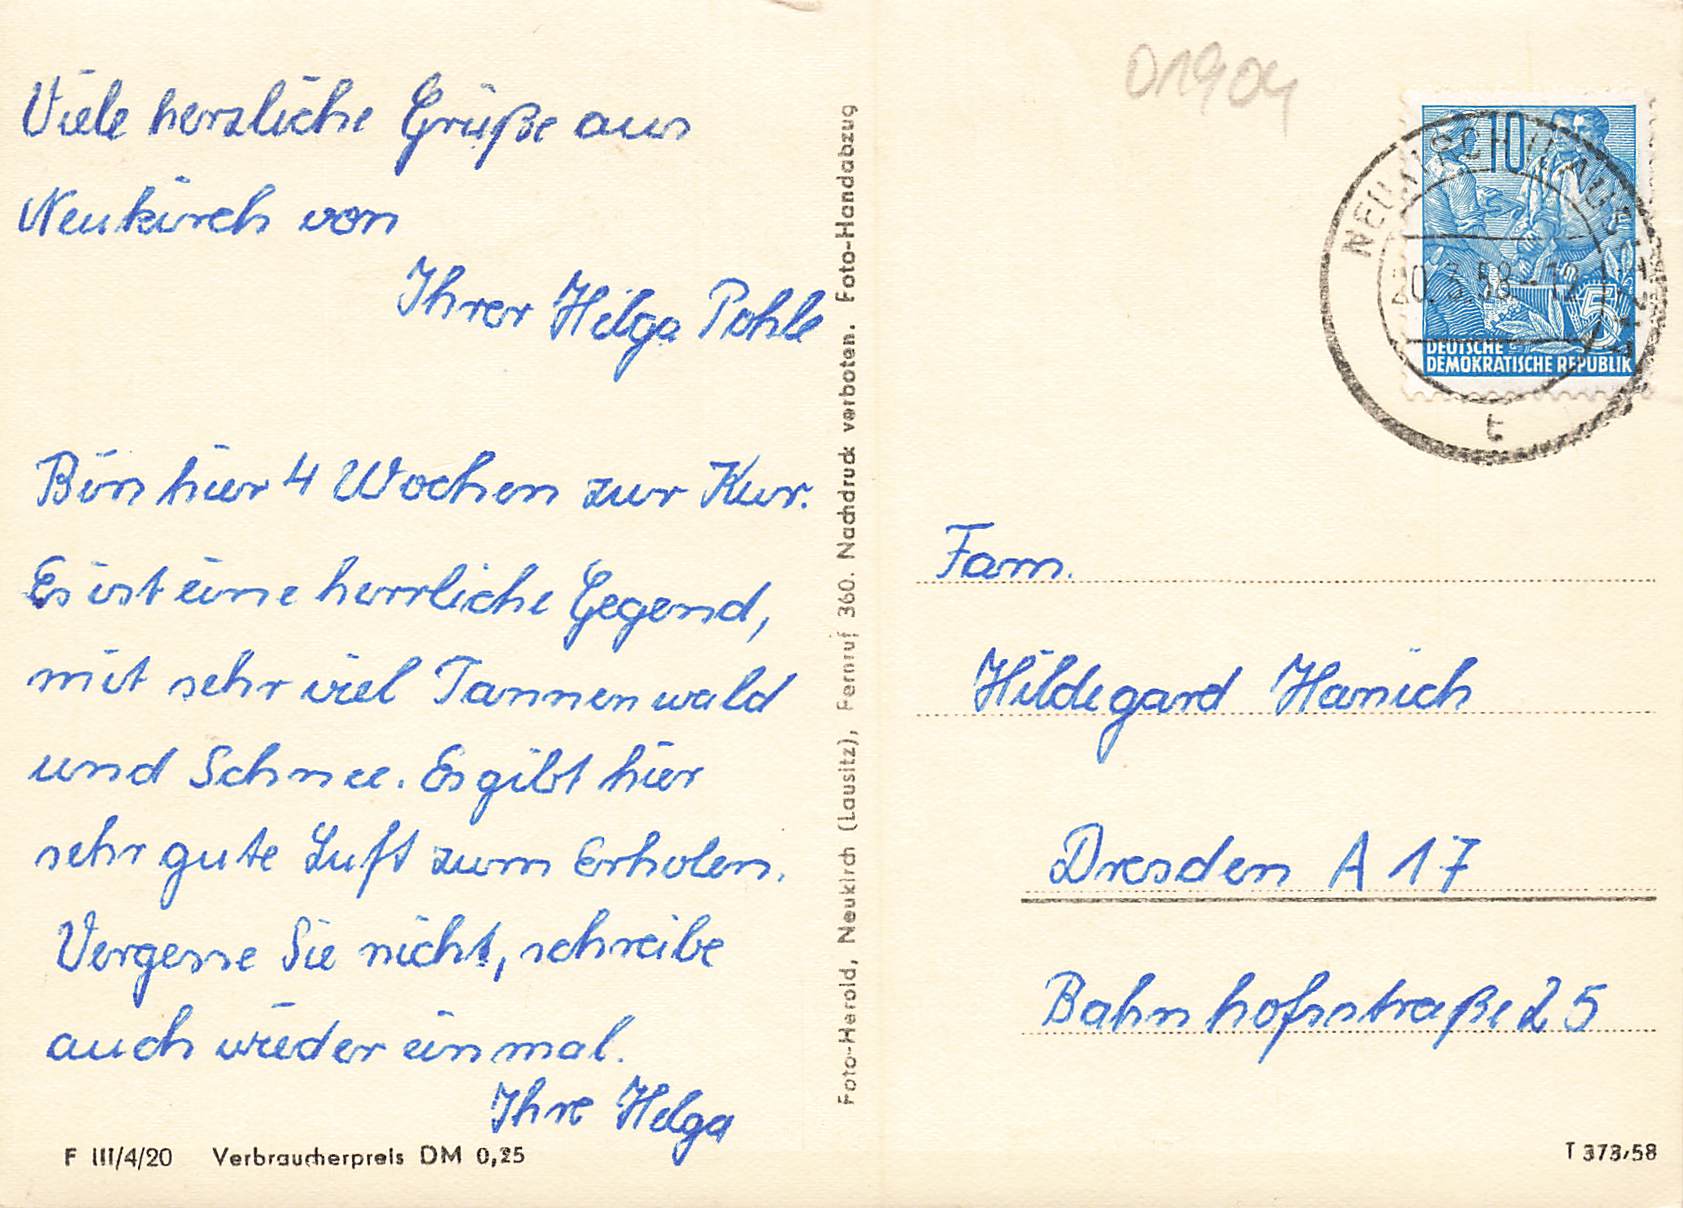 Viele herzliche Grüße aus
Neukirch von
Ihrer Helga Pohle
Bin hier 4 Wochen zur Kur.
Es ist eine herrliche Gegend,
mit sehr viel Tannenwald
und Schnee. Es gibt hier
sehr gute Luft zum Erholen.
Vergesse Sie nicht, schreibe
auch wieder einmal.
Ihre Helga
F III/4/20 Verbraucherpreis DM 0,25
Foto-Herold, Neukirch (Lausitz), Fernruf 360. Nachdruck verboten. Foto-Handabzug
01904
10
5
DEUTSCHE
DEMOKRATISCHE REPUBLIK
20.3.58-12
t
Fam.
Hildegard Hanich
Dresden A 17
Bahnhofsstraße 25
T 373/58